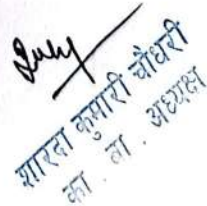 शारदा कुमारी चौधरी
का. वा. अध्यक्ष